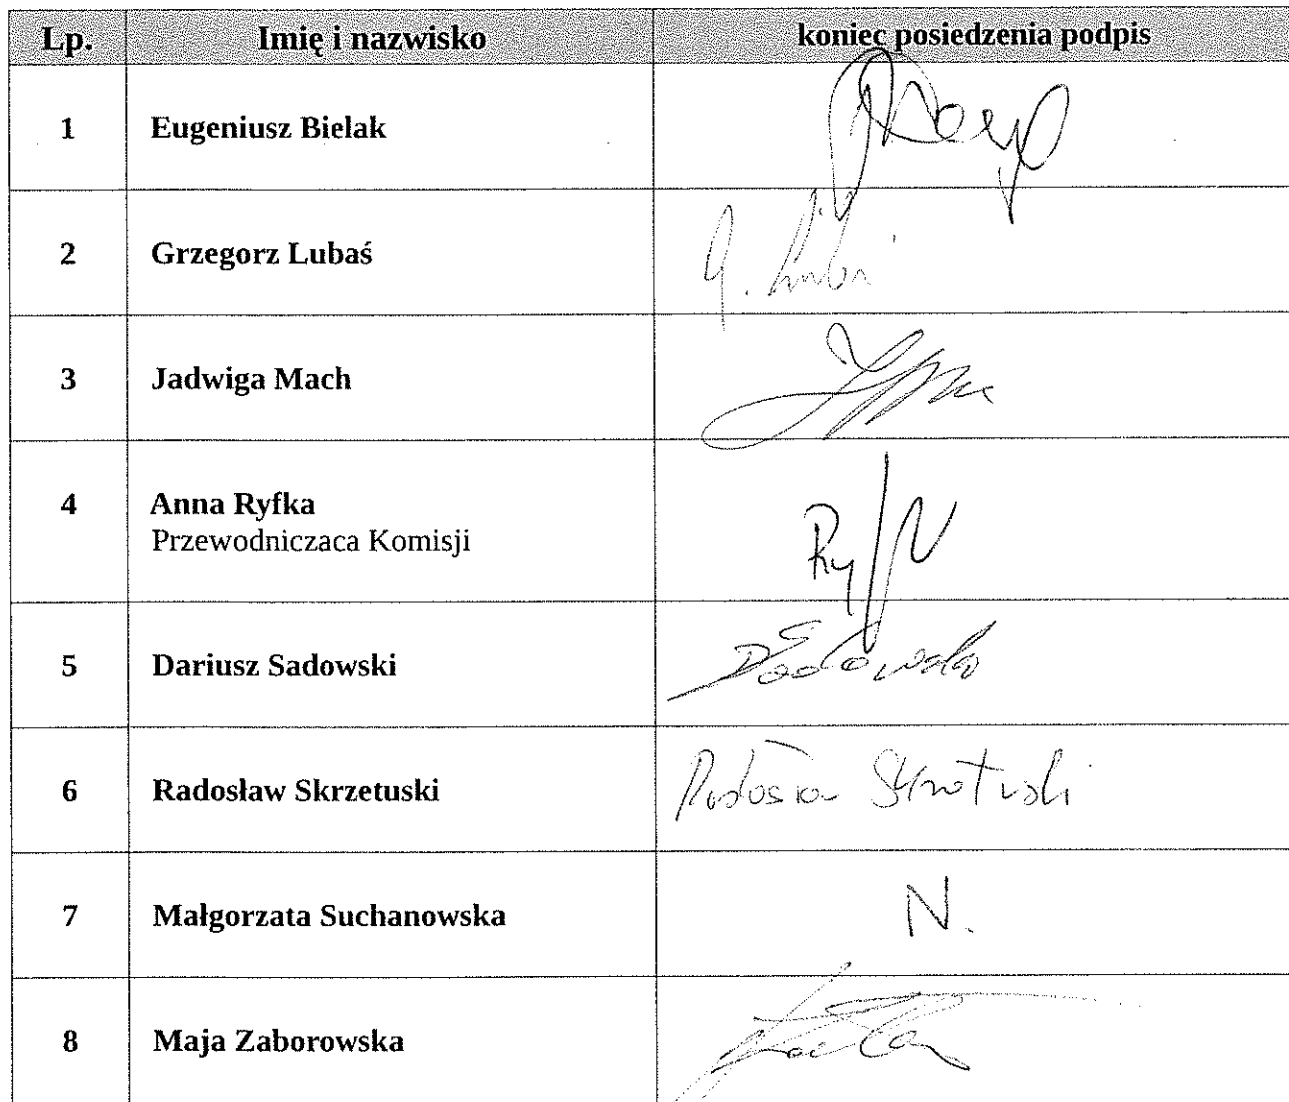 Lp. Imię i nazwisko koniec posiedzenia podpis
1 Eugeniusz Bielak
2 Grzegorz Lubaś
3 Jadwiga Mach
4 Anna Ryfka
Przewodniczaca Komisji
5 Dariusz Sadowski
6 Radosław Skrzetuski
7 Małgorzata Suchanowska N.
8 Maja Zaborowska